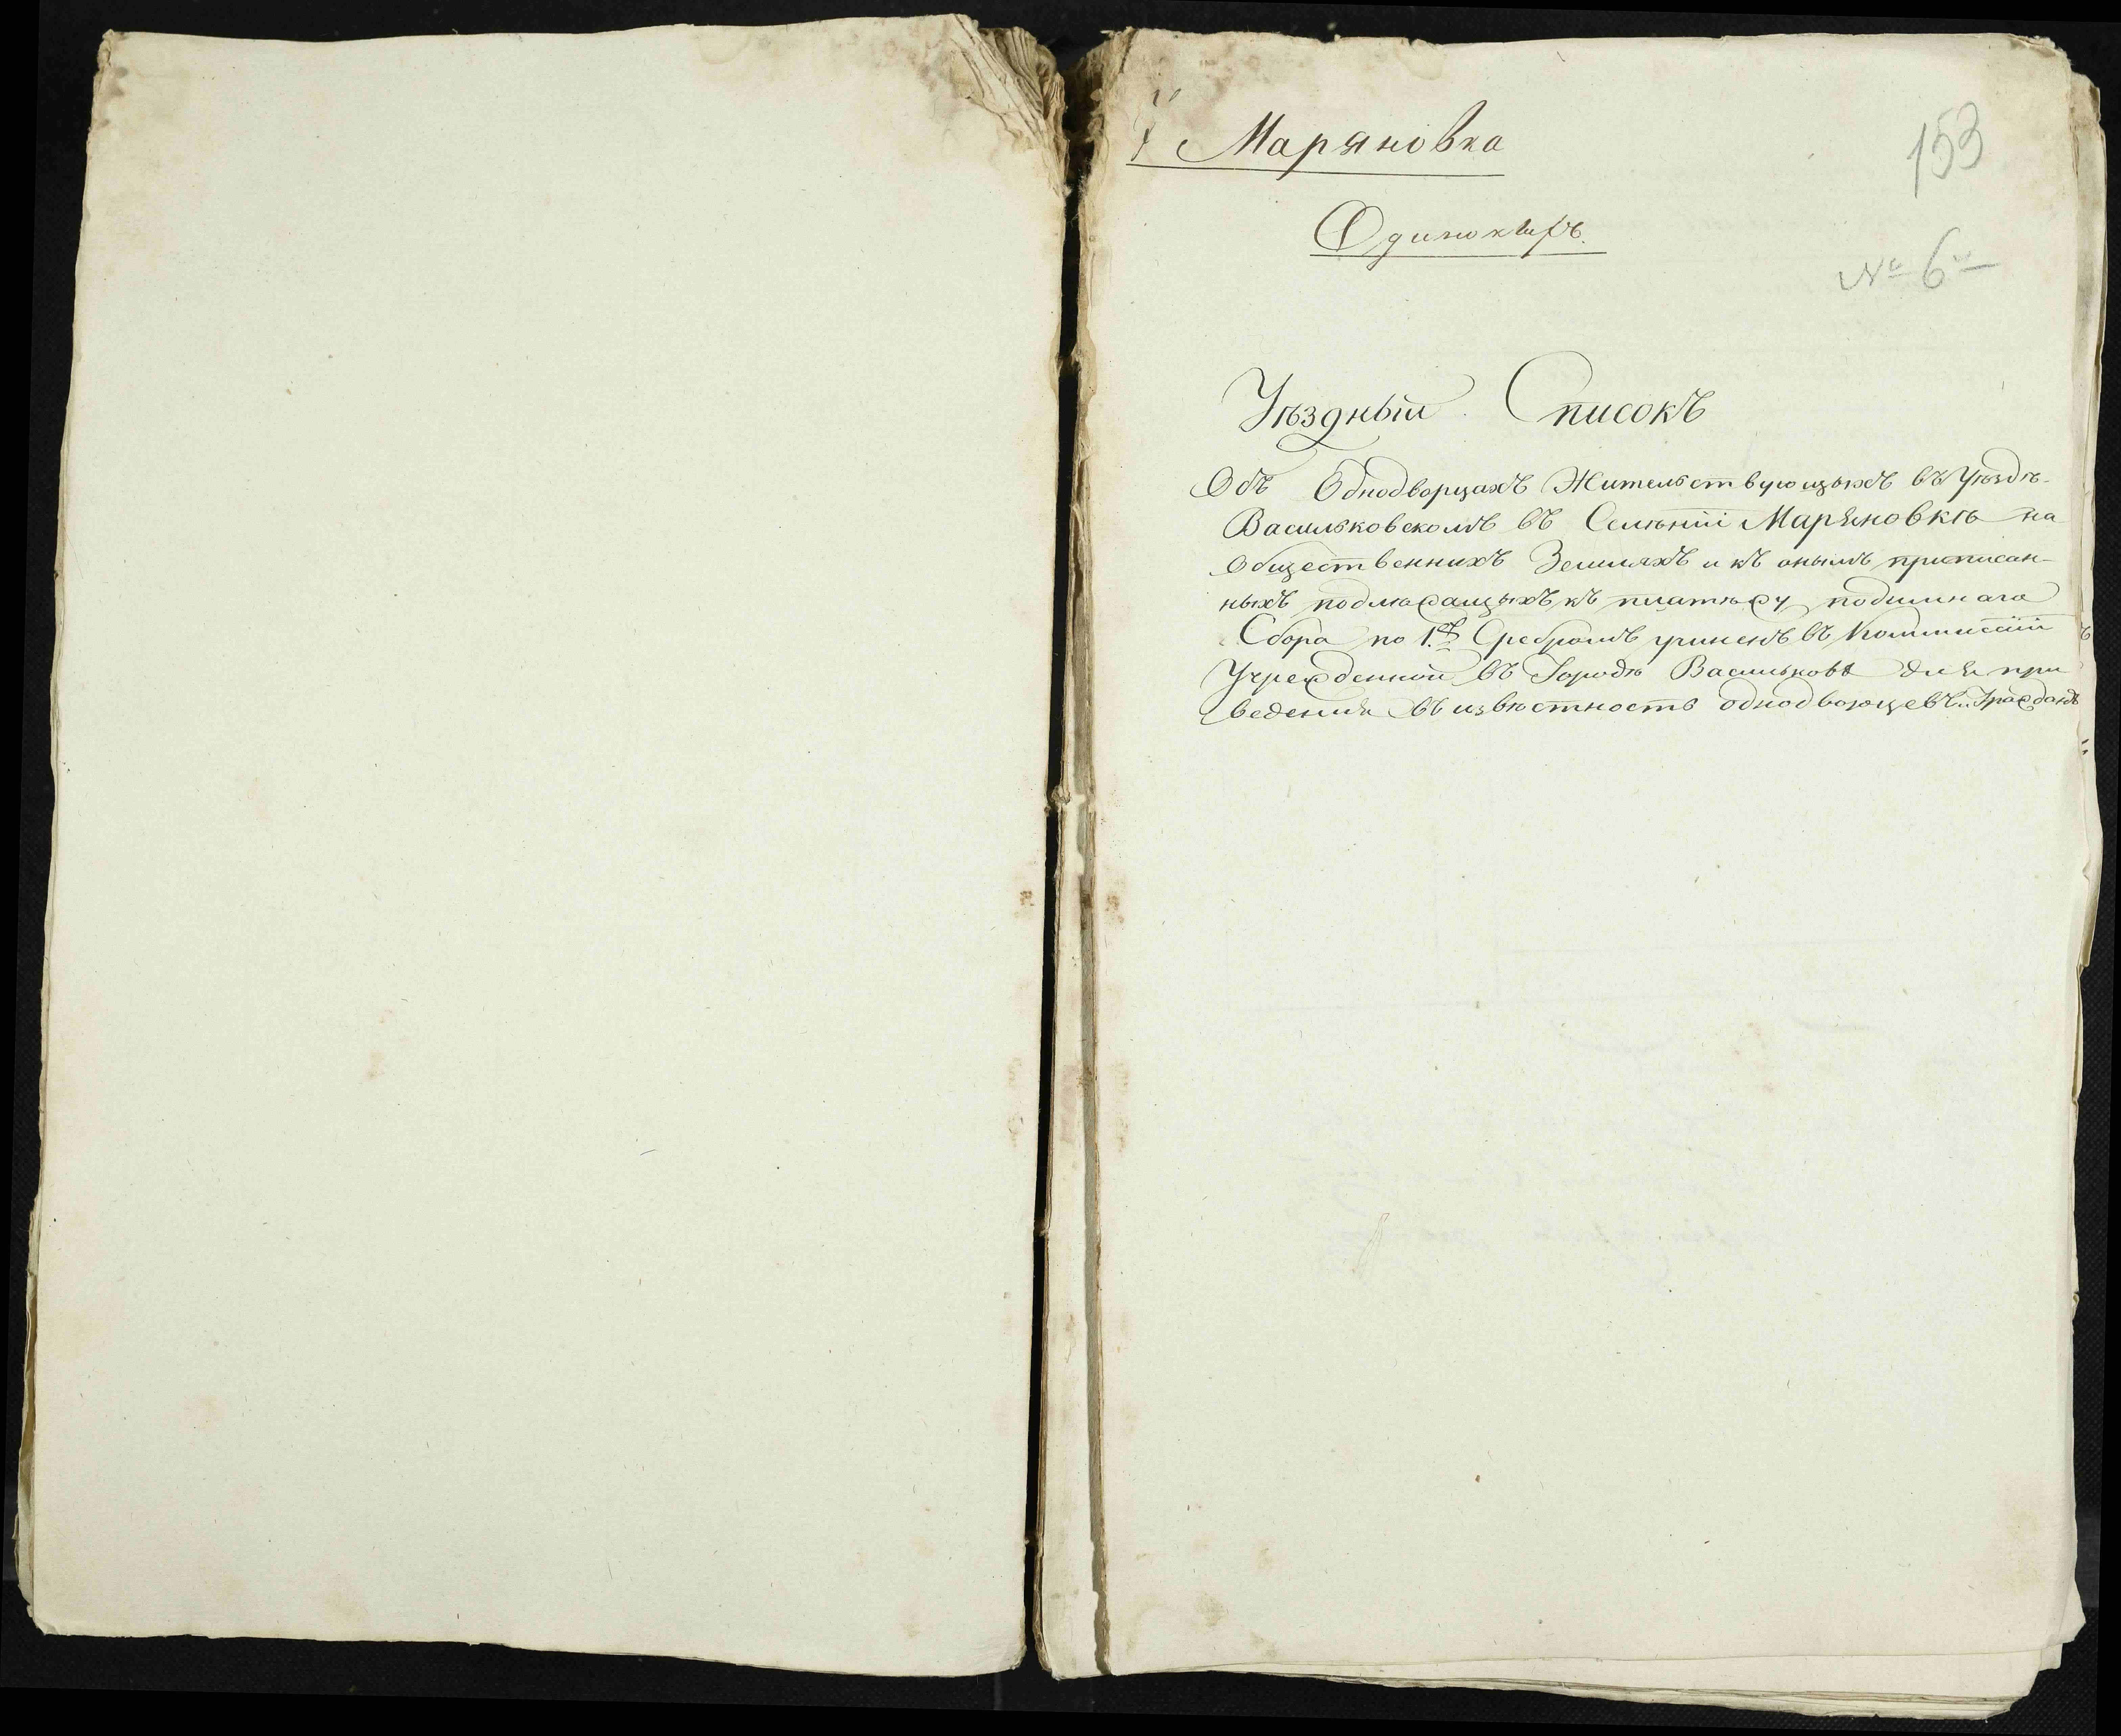 Маряновка
153
Одинокихъ.
№ 6й
Уѣздный Списокъ
Объ Однодворцахъ Жительствующыхъ въ Уѣздѣ
Васильковскомъ въ Селѣніи Маряновкѣ на
Общественнихъ Земляхъ и къ онымъ приписан-
ныхъ подлѣжащыхъ къ платѣжу подимнаго
Сбора по 1. Сребромъ учиненъ въ Коммиссіи
Учрежденной въ Городѣ Василковѣ для при
ведения въ извѣстность однодворцевъ и Гражданъ